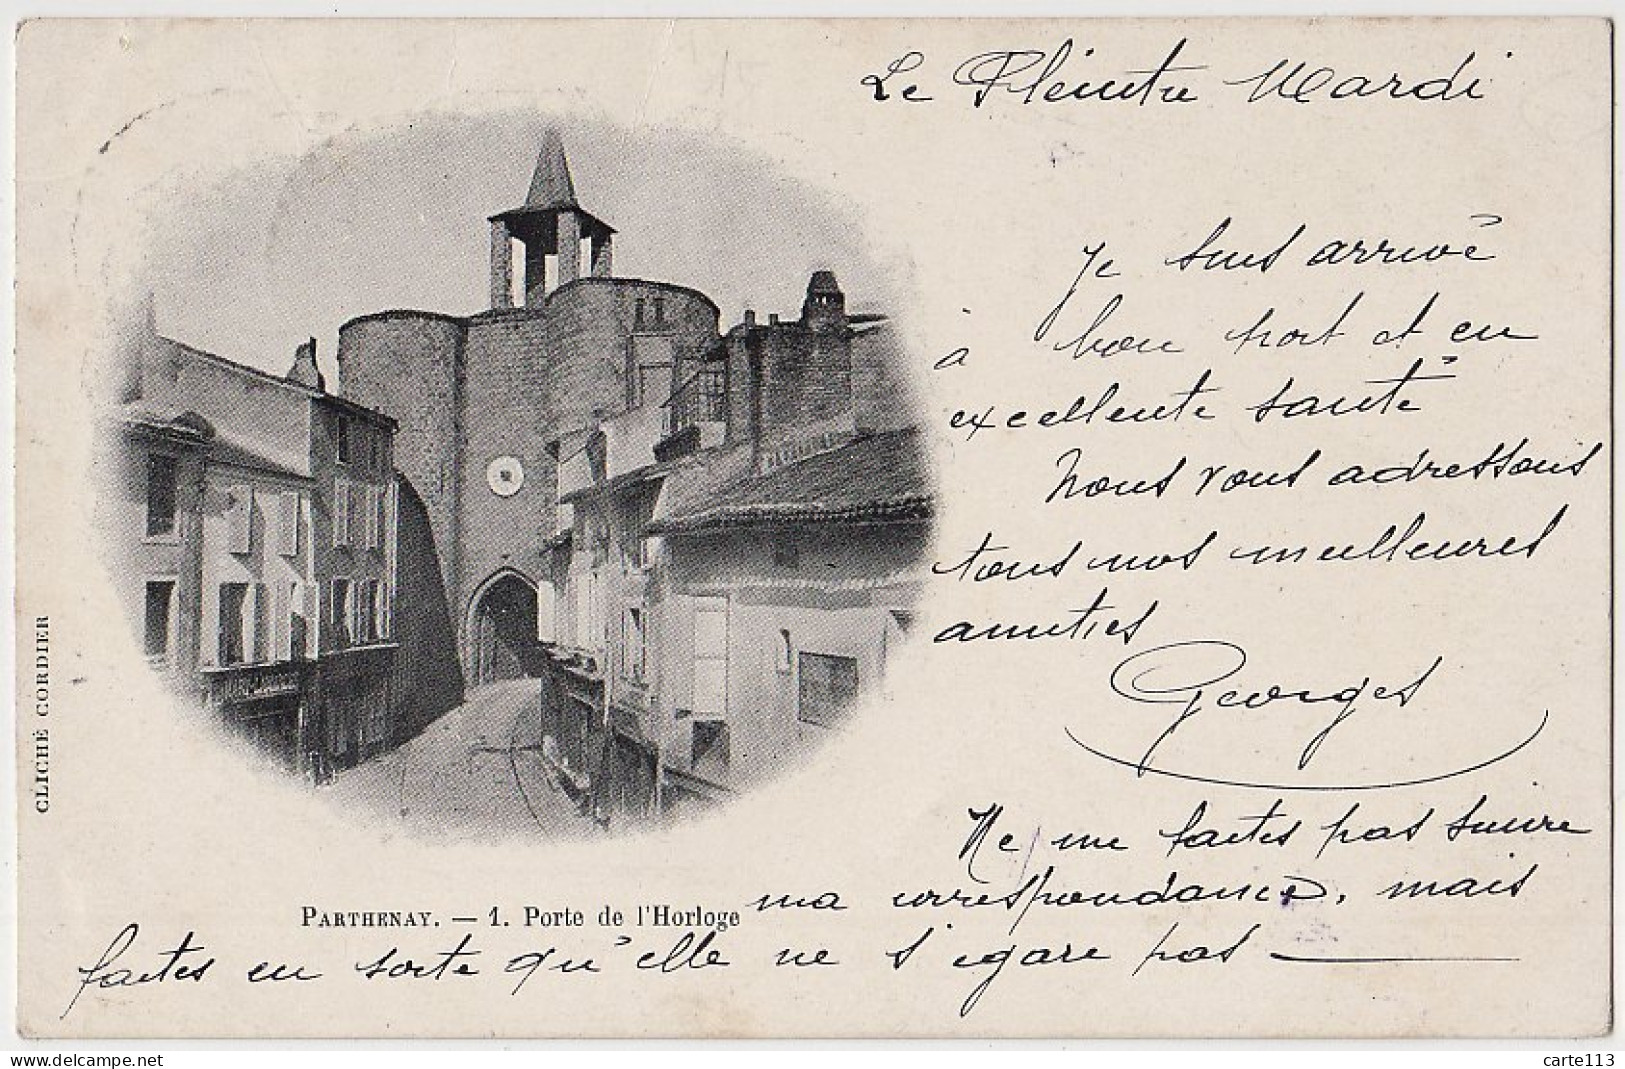 Le Pleintre Mardi
Je suis arrivé
à bon port et en
excellente santé
Nous vous adressons
tous nos meilleures
amitiés
Georges
Ne me faites pas suivre
ma correspondance, mais
faites en sorte qu'elle ne s'egare pas
PARTHENAY. — 1. Porte de l'Horloge
CLICHÉ CORDIER
www.delcampe.net
carte113